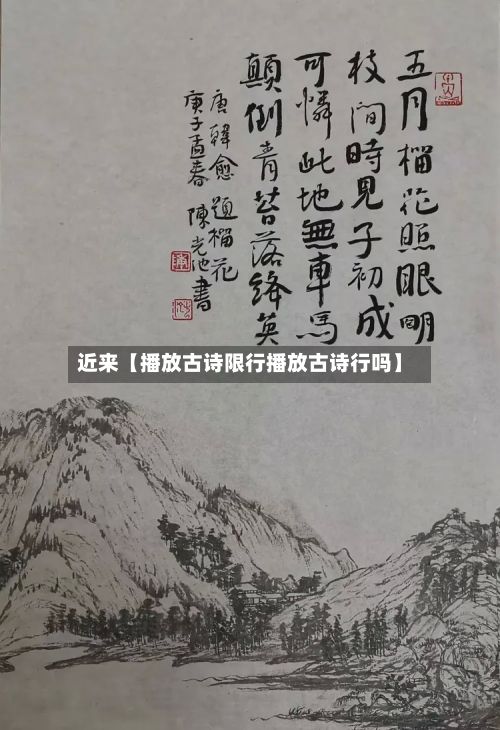 五月榴花照眼明
枝间時見子初成
可憐此地無車馬
顛倒青苔落絳英
唐 韓愈 題榴花
庚子孟春 陳光池書
近来【播放古诗限行播放古诗行吗】